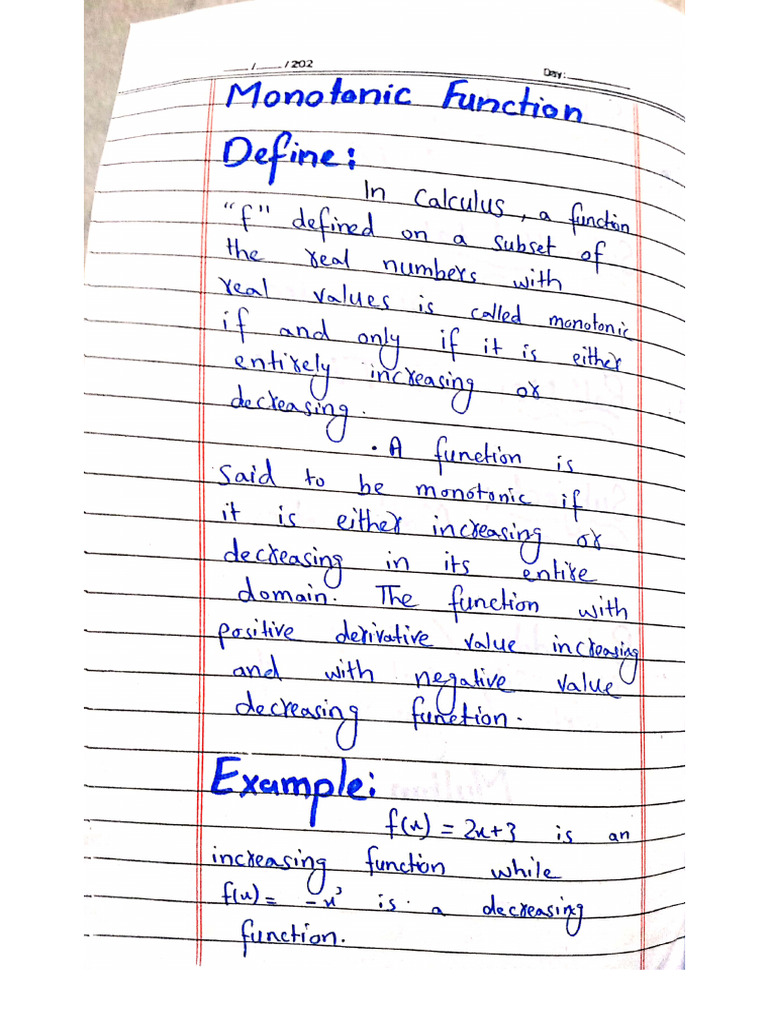 __/__/202
Day:______
Monotonic Function
Define:
In Calculus, a function
"f" defined on a subset of
the real numbers with
real values is called monotonic
if and only if it is either
entirely increasing or
decreasing.
• A function is
said to be monotonic if
it is either increasing or
decreasing in its entire
domain. The function with
positive derivative value increasing
and with negative value
decreasing function.
Example:
f(x) = 2x+3 is an
increasing function while
f(x) = -x³ is a decreasing
function.